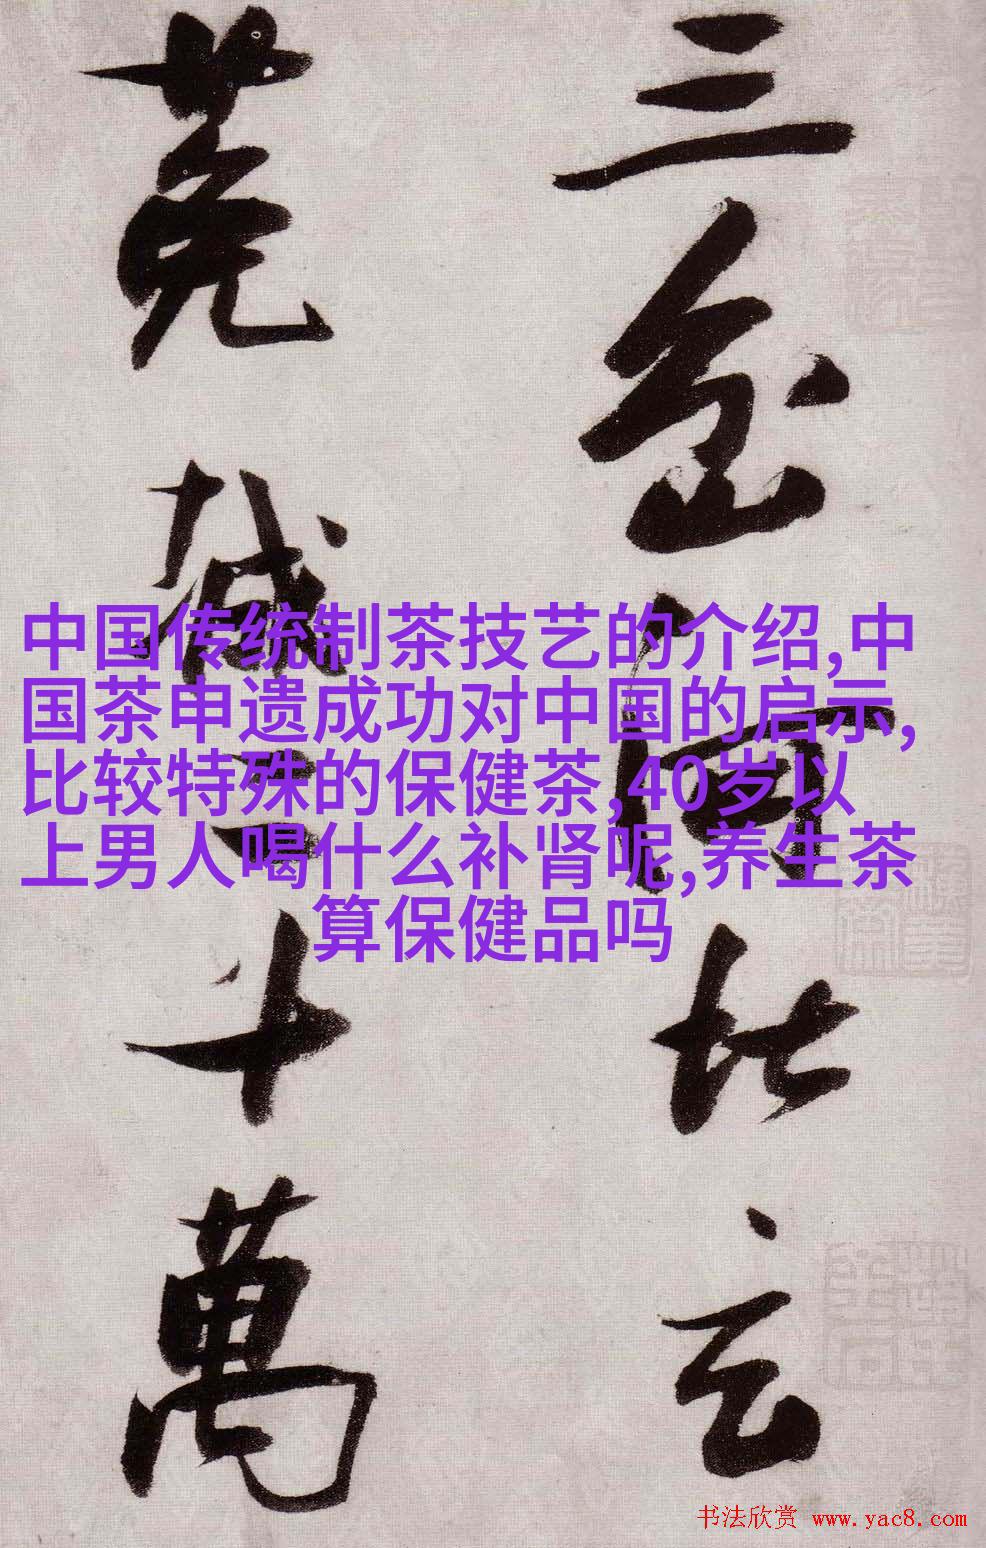 中国传统制茶技艺的介绍,中
国茶申遗成功对中国的启示,
比较特殊的保健茶,40岁以
上男人喝什么补肾呢,养生茶
算保健品吗
三 比云
二十萬
书法欣赏 www.yac8.com